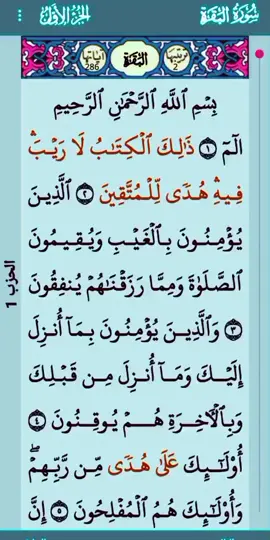 سُورَةُ البَقَرَةِ
الجُزْءُ الأَوَّلُ
ترتيبها 2
البَقَرَة
آياتها 286
بِسْمِ ٱللَّهِ ٱلرَّحْمَٰنِ ٱلرَّحِيمِ
الٓمٓ ١ ذَٰلِكَ ٱلْكِتَٰبُ لَا رَيْبَۛ
فِيهِۛ هُدًى لِّلْمُتَّقِينَ ٢ ٱلَّذِينَ
يُؤْمِنُونَ بِٱلْغَيْبِ وَيُقِيمُونَ
ٱلصَّلَوٰةَ وَمِمَّا رَزَقْنَٰهُمْ يُنفِقُونَ
٣ وَٱلَّذِينَ يُؤْمِنُونَ بِمَآ أُنزِلَ
إِلَيْكَ وَمَآ أُنزِلَ مِن قَبْلِكَ
وَبِٱلْأٓخِرَةِ هُمْ يُوقِنُونَ ٤
أُوْلَٰٓئِكَ عَلَىٰ هُدًى مِّن رَّبِّهِمْۖ
وَأُوْلَٰٓئِكَ هُمُ ٱلْمُفْلِحُونَ ٥ إِنَّ
الحزب 1